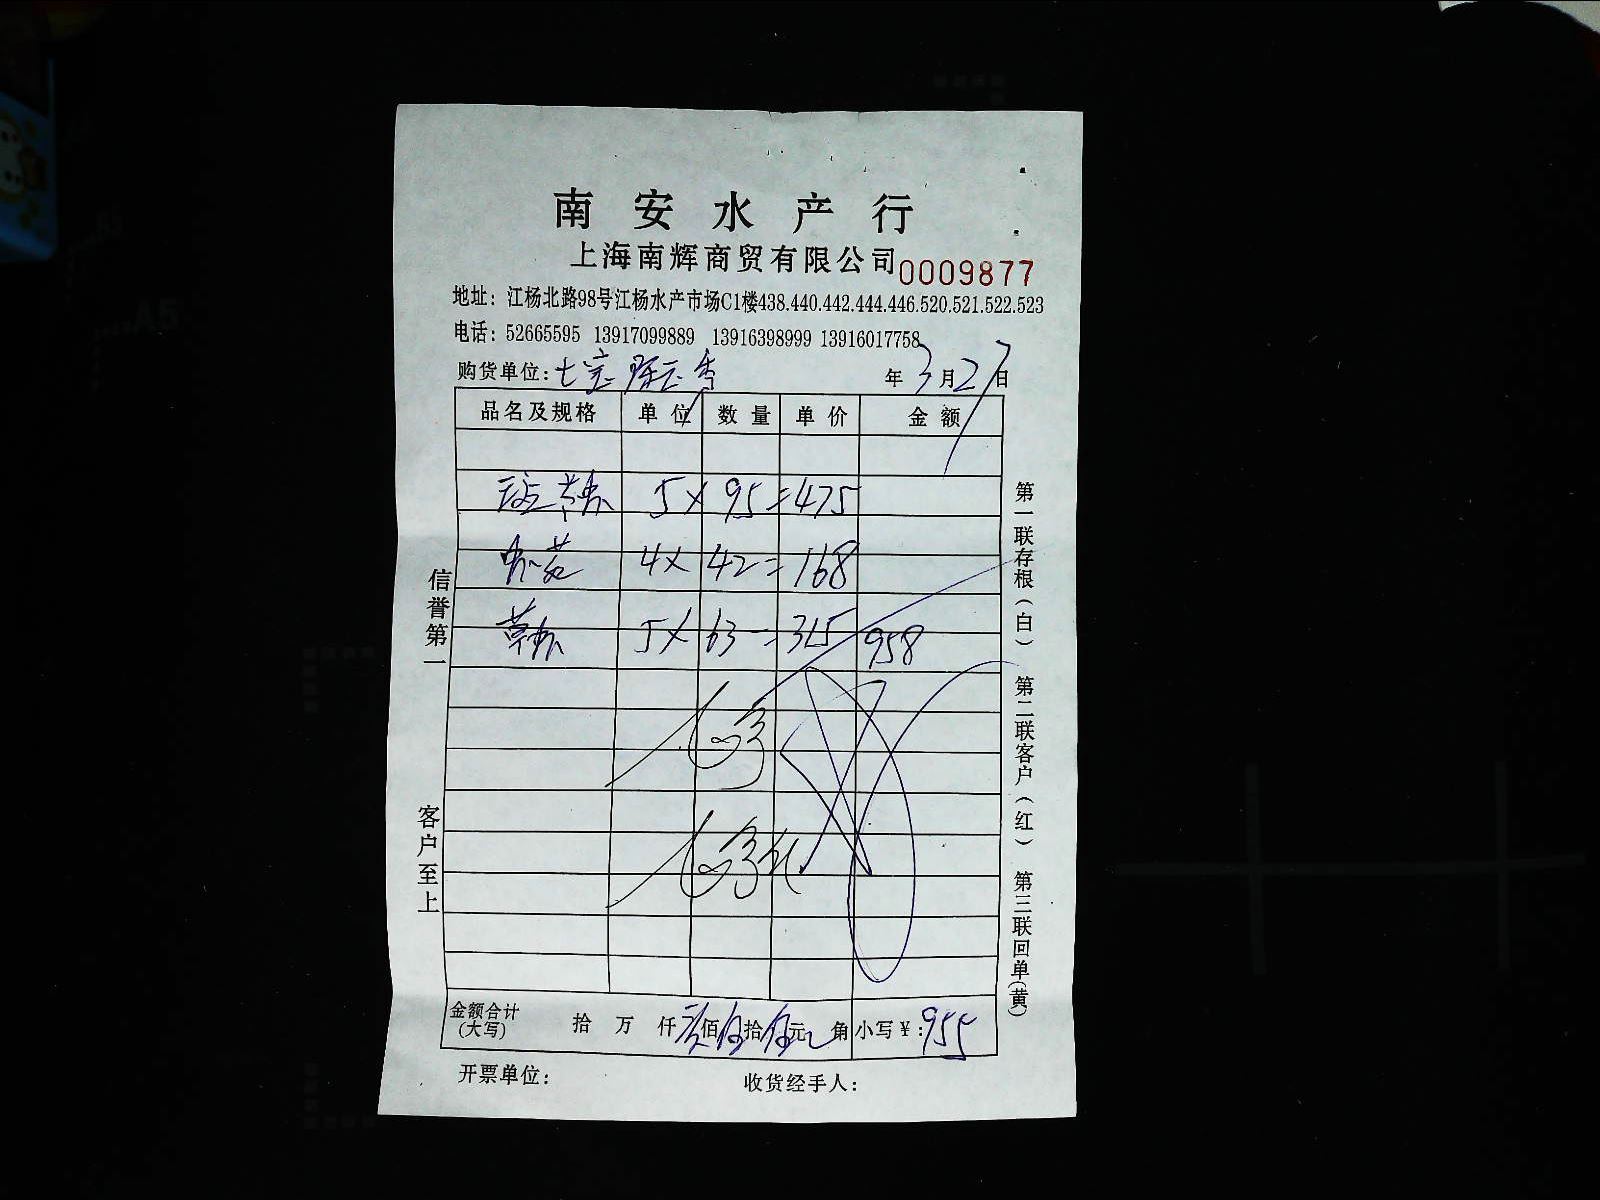 南安水产行
上海南辉商贸有限公司 0009877
地址：江杨北路98号江杨水产市场C1楼438.440.442.444.446.520.521.522.523
电话：52665595 13917099889 13916398999 13916017758
购货单位：七宝 年3月27日
品名及规格 单位 数量 单价 金额
5×95=475
4×42=168
5×63=315 958
金额合计(大写) 拾 万 仟 佰伍拾伍元 角 小写￥：955
开票单位： 收货经手人：
信誉第一
客户至上
第一联存根(白) 第二联客户(红) 第三联回单(黄)